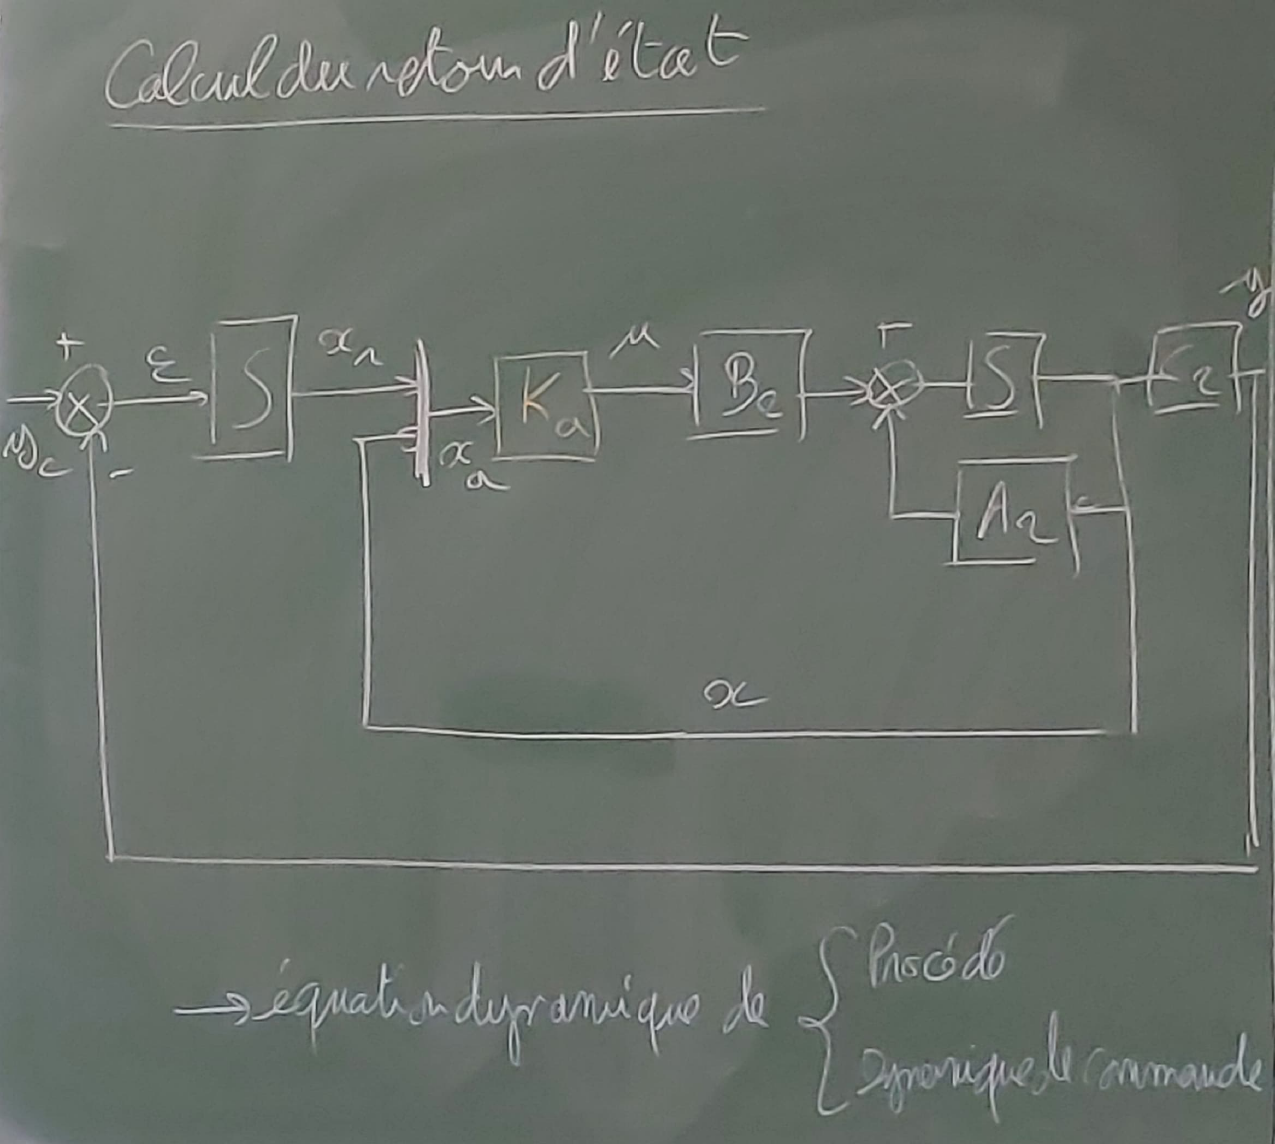 Calcul du retour d'état
+ ε ∫ x_r K_a u B_2 + ∫ C_2 y
y_c - x_a A_2
x
→ équation dynamique de { Procédé
Dynamique de commande